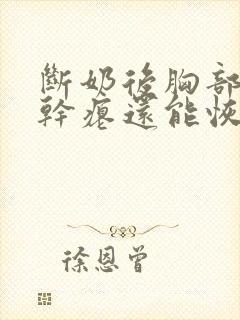 斷奶後胸部
幹癟還能恢
徐恩曾